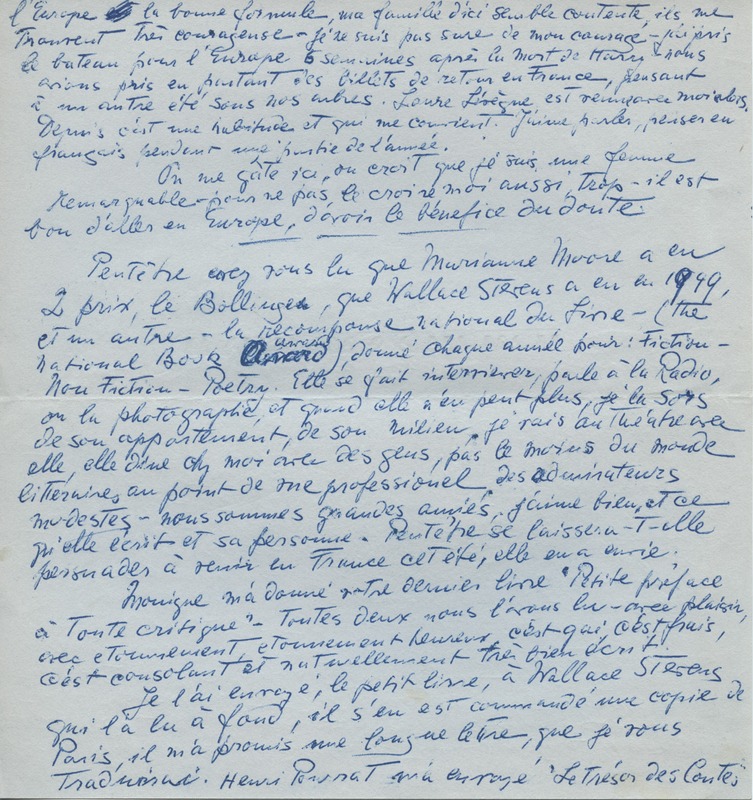 l'Europe la bonne formule, ma famille d'ici semble contente, ils me
trouvent très courageuse - je ne suis pas sure de mon courage - j'ai pris
le bateau pour l'Europe 6 semaines après la mort de Harry - nous
avions pris en partant des billets de retour en France, pensant
à un autre été sous nos arbres. Laure Lévêque est venue avec moi alors,
Depuis c'est une habitude et qui me convient. J'aime parler, penser en
français pendant une partie de l'année.
On me gâte ici, on croit que je suis une femme
remarquable - pour ne pas le croire moi aussi, trop - il est
bon d'aller en Europe, d'avoir le bénéfice du doute.
Peutêtre avez vous lu que Marianne Moore a eu
2 prix, le Bollingen, que Wallace Stevens a eu en 1949,
et un autre - la récompense national du Livre - (the
National Book award), donné chaque année pour: Fiction -
Non Fiction - Poetry. Elle se fait interviewer, parle à la Radio,
on la photographie, et quand elle n'en peut plus, je la sors
de son appartement, de son milieu, je vais au théâtre avec
elle, elle dine chez moi avec des gens, pas le moins du monde
littéraires, au point de vue professionel, des admirateurs
modestes - nous sommes grandes amies, j'aime bien, et ce
qu'elle écrit et sa personne. Peutêtre se laissera-t-elle
persuader à venir en France cet été, elle en a envie.
Monique m'a donné votre dernier livre "Petite préface
à Toute critique" - Toutes deux nous l'avons lu - avec plaisir,
avec etonnement, etonnement heureux, c'est gai, c'est frais,
c'est consolant et naturellement très bien écrit.
Je l'ai envoyé, le petit livre, à Wallace Stevens
qui l'a lu à fond, il s'en est commandé une copie de
Paris, il m'a promis une longue lettre, que je vous
traduirai. Henri Pourrat m'a envoyé "Le Trésor des Contes"